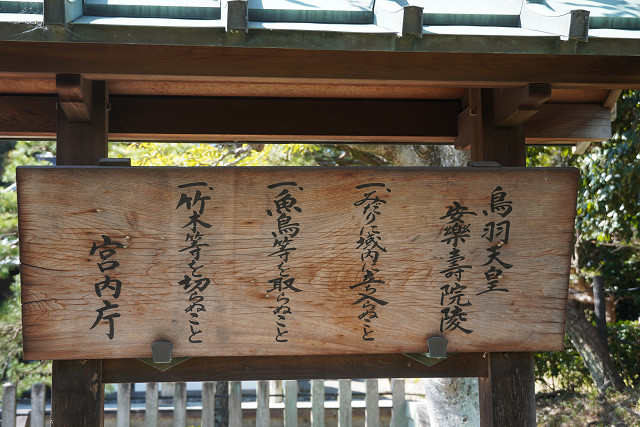 鳥羽天皇
安樂壽院陵
一、みだりに域内に立ち入らぬこと
一、魚鳥等を取らぬこと
一、竹木等を切らぬこと
宮内庁